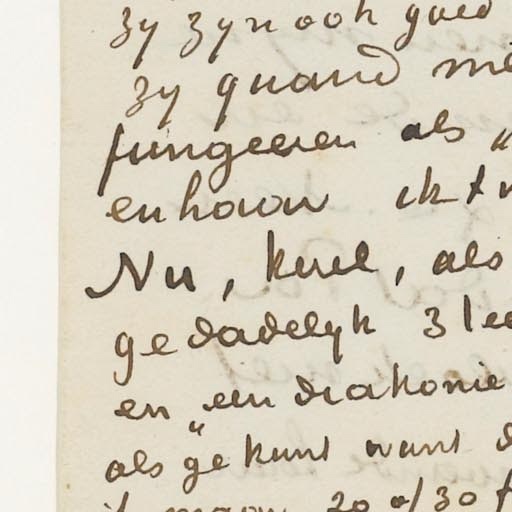 zy zyn ook goed
zy quand me
fungeeren als "
en haar ik
Nu, kerel, als
gedadelyk 3 le
en een diakonie
als ge kunt want d
maar 20 à 30 f